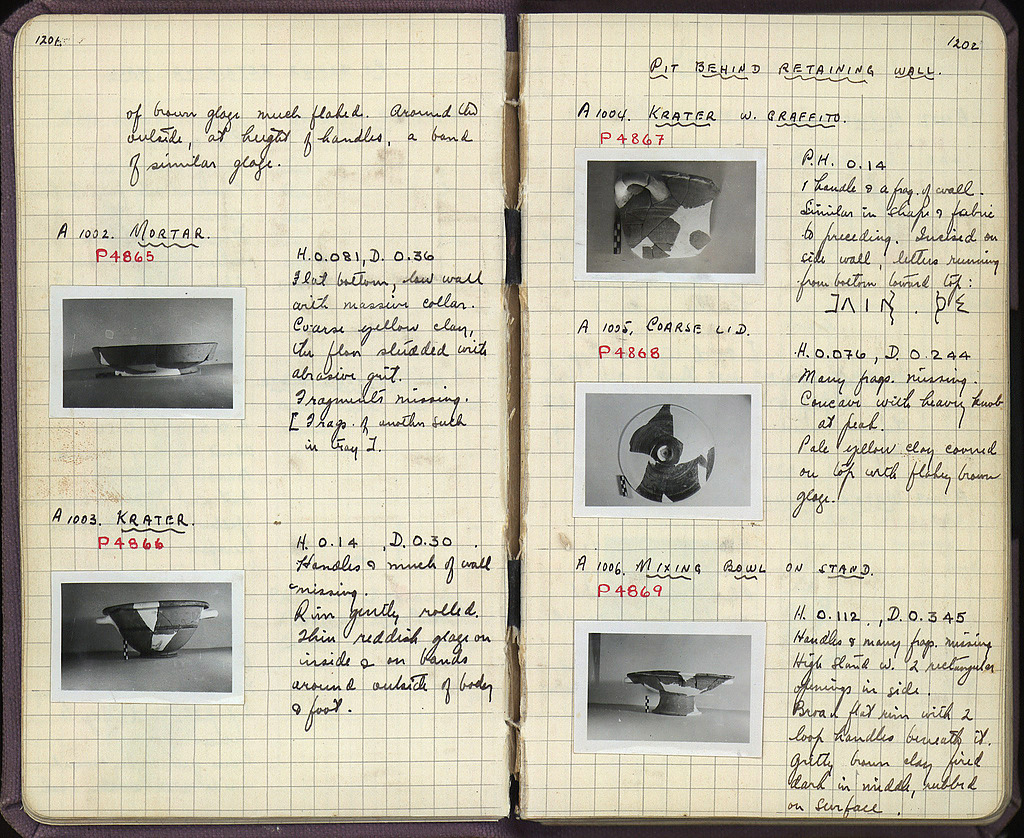 1201.
of brown glaze much flaked. Around the
outside, at height of handles, a band
of similar glaze.
A 1002. MORTAR.
P4865
H. 0.081, D. 0.36
Flat bottom, low wall
with massive collar.
Coarse yellow clay,
the floor studded with
abrasive grit.
Fragments missing.
[ Frags. of another such
in tray I.
A 1003. KRATER.
P4866
H. 0.14 , D. 0.30
Handles & much of wall
missing.
Rim gently rolled.
Thin reddish glaze on
inside & on bands
around outside of body
& foot.
1202
PIT BEHIND RETAINING WALL.
A 1004. KRATER W. GRAFFITO.
P4867
P.H. 0.14
1 handle & a frag. of wall.
Similar in shape & fabric
to preceding. Incised on
side wall, letters running
from bottom toward top:
A 1005. COARSE LID.
P4868
H. 0.076, D. 0.244
Many frags. missing.
Concave with heavy knob
at peak.
Pale yellow clay covered
on top with flakey brown
glaze.
A 1006. MIXING BOWL ON STAND.
P4869
H. 0.112 , D. 0.345
Handles & many frags. missing
High stand w. 2 rectangular
openings in side.
Broad flat rim with 2
loop handles beneath it.
Gritty brown clay fired
dark in middle, rubbed
on surface.